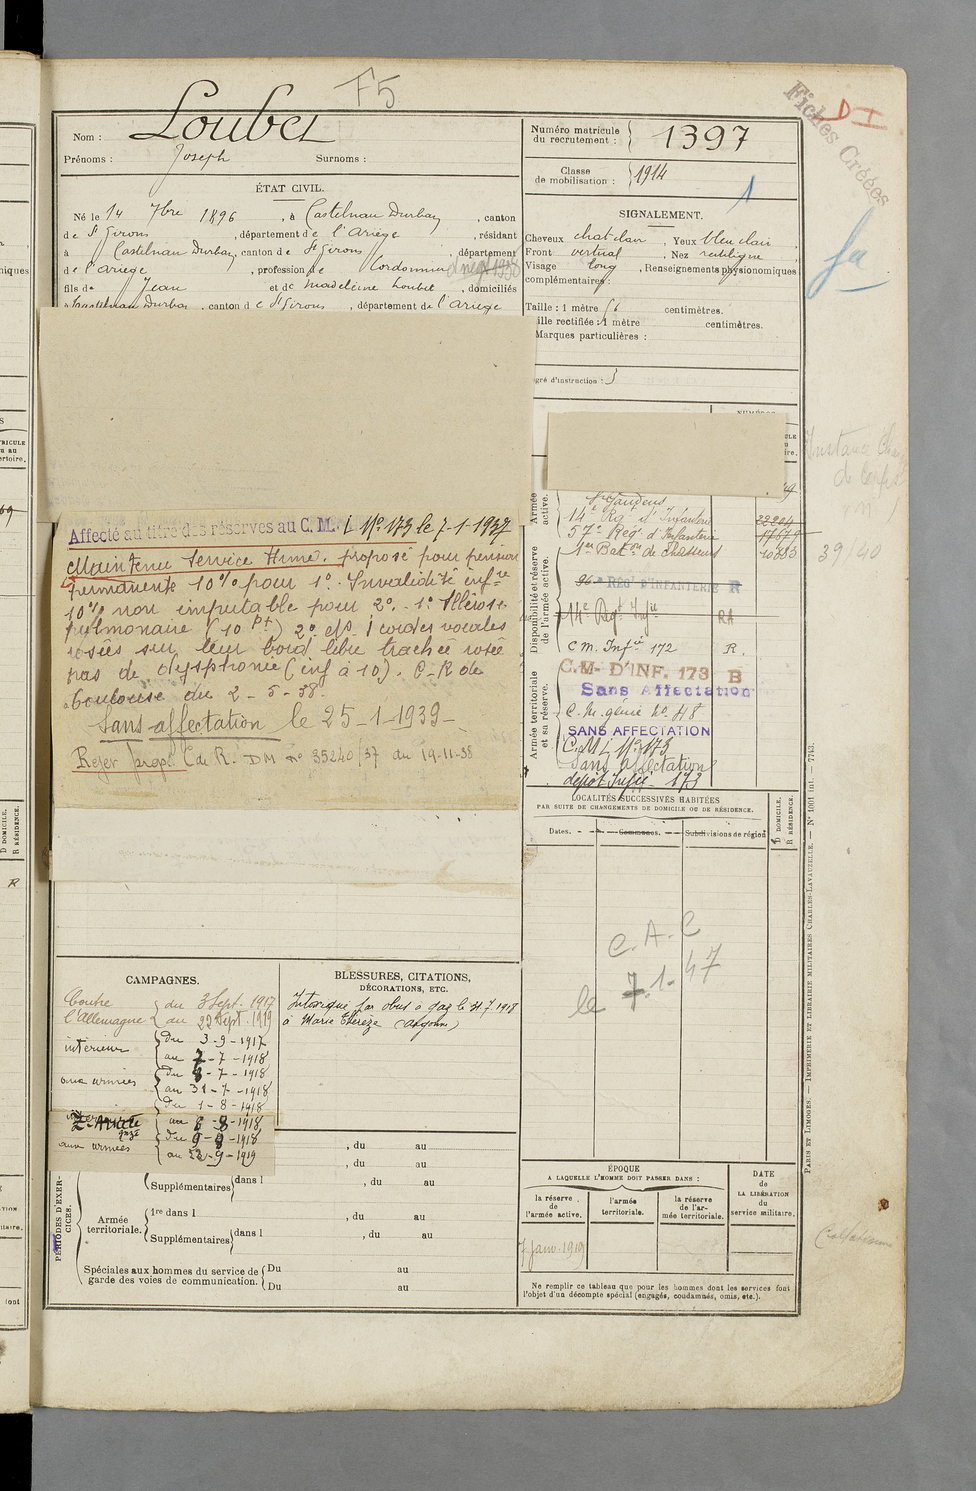 F5
Fiches Créées
D I
Nom : Loubet
Prénoms : Joseph Surnoms :
Numéro matricule du recrutement : 1397
Classe de mobilisation : 1914
1
ÉTAT CIVIL.
Né le 14 7bre 1896, à Castelnau Durban, canton
de St Girons, département de l'Ariège, résidant
à Castelnau Durban, canton de St Girons, département
de l'Ariège, profession de Cordonnier
fils de Jean et de Madeleine Loubet, domiciliés
à Castelnau Durban, canton de St Girons, département de l'Ariège
SIGNALEMENT.
Cheveux chat clair, Yeux bleu clair,
Front vertical, Nez rectiligne,
Visage long, Renseignements physionomiques
complémentaires :
Taille : 1 mètre 56 centimètres.
Taille rectifiée : 1 mètre centimètres.
Marques particulières :
Degré d'instruction :
Affecté au titre des réserves au C. M. I No 173 le 7-1-1937
Maintenu Service Armé. proposé pour pension
permanente 10% pour 1º. Invalidité infre
10% non imputable pour 2º. 1º Sclérose
pulmonaire (10 pt) 2º cordes vocales
rosées sur leur bord libre trachée rosée
pas de dysphonie (inf à 10). C-R de
Toulouse du 2-5-38.
Sans affectation le 25-1-1939-
Rejet propo. C de R. DM nº 35240/37 du 19-11-38
Armée active.
St Gaudens
14e Rgt d'Infanterie 22204
57e Régt d'Infanterie
1er Baton de Chasseurs
Disponibilité et réserve de l'armée active.
96e RÉGt D'INFANTERIE R
14e Regt Infie RA
C m. Infie 172 R.
Armée territoriale et sa réserve.
C.M- D'INF. 173 B
Sans Affectation
C. M. génie No 48
SANS AFFECTATION
C M I No 173
Sans affectation
dépôt Infie 173
39/40
LOCALITÉS SUCCESSIVES HABITÉES
PAR SUITE DE CHANGEMENTS DE DOMICILE OU DE RÉSIDENCE.
Dates. Communes. Subdivisions de région
D DOMICILE.
R RÉSIDENCE.
C. A. C
le 7.1.47
CAMPAGNES.
Contre l'Allemagne du 3 Sept. 1917
au 22 Sept. 1919
intérieur du 3-9-1917
au 7-7-1918
aux armées du 8-7-1918
au 31-7-1918
du 1-8-1918
au 8-8-1918
aux armées du 9-8-1918
au 22-9-1919
BLESSURES, CITATIONS,
DÉCORATIONS, ETC.
Intoxiqué par obus à gaz le 31.7.1918
à Marie Thérèze (Argonne)
PÉRIODES D'EXERCICES.
, du au
, du au
Supplémentaires dans l , du au
Armée territoriale.
1re dans l , du au
Supplémentaires dans l , du au
Spéciales aux hommes du service de
garde des voies de communication.
Du au
Du au
ÉPOQUE
A LAQUELLE L'HOMME DOIT PASSER DANS :
la réserve de l'armée active.
l'armée territoriale.
la réserve de l'armée territoriale.
DATE de LA LIBÉRATION du service militaire.
7 janv. 1919
Ne remplir ce tableau que pour les hommes dont les services font
l'objet d'un décompte spécial (engagés, condamnés, omis, etc.).
PARIS ET LIMOGES. — IMPRIMERIE ET LIBRAIRIE MILITAIRES CHARLES-LAVAUZELLE. — No 1001 int. — 7743.